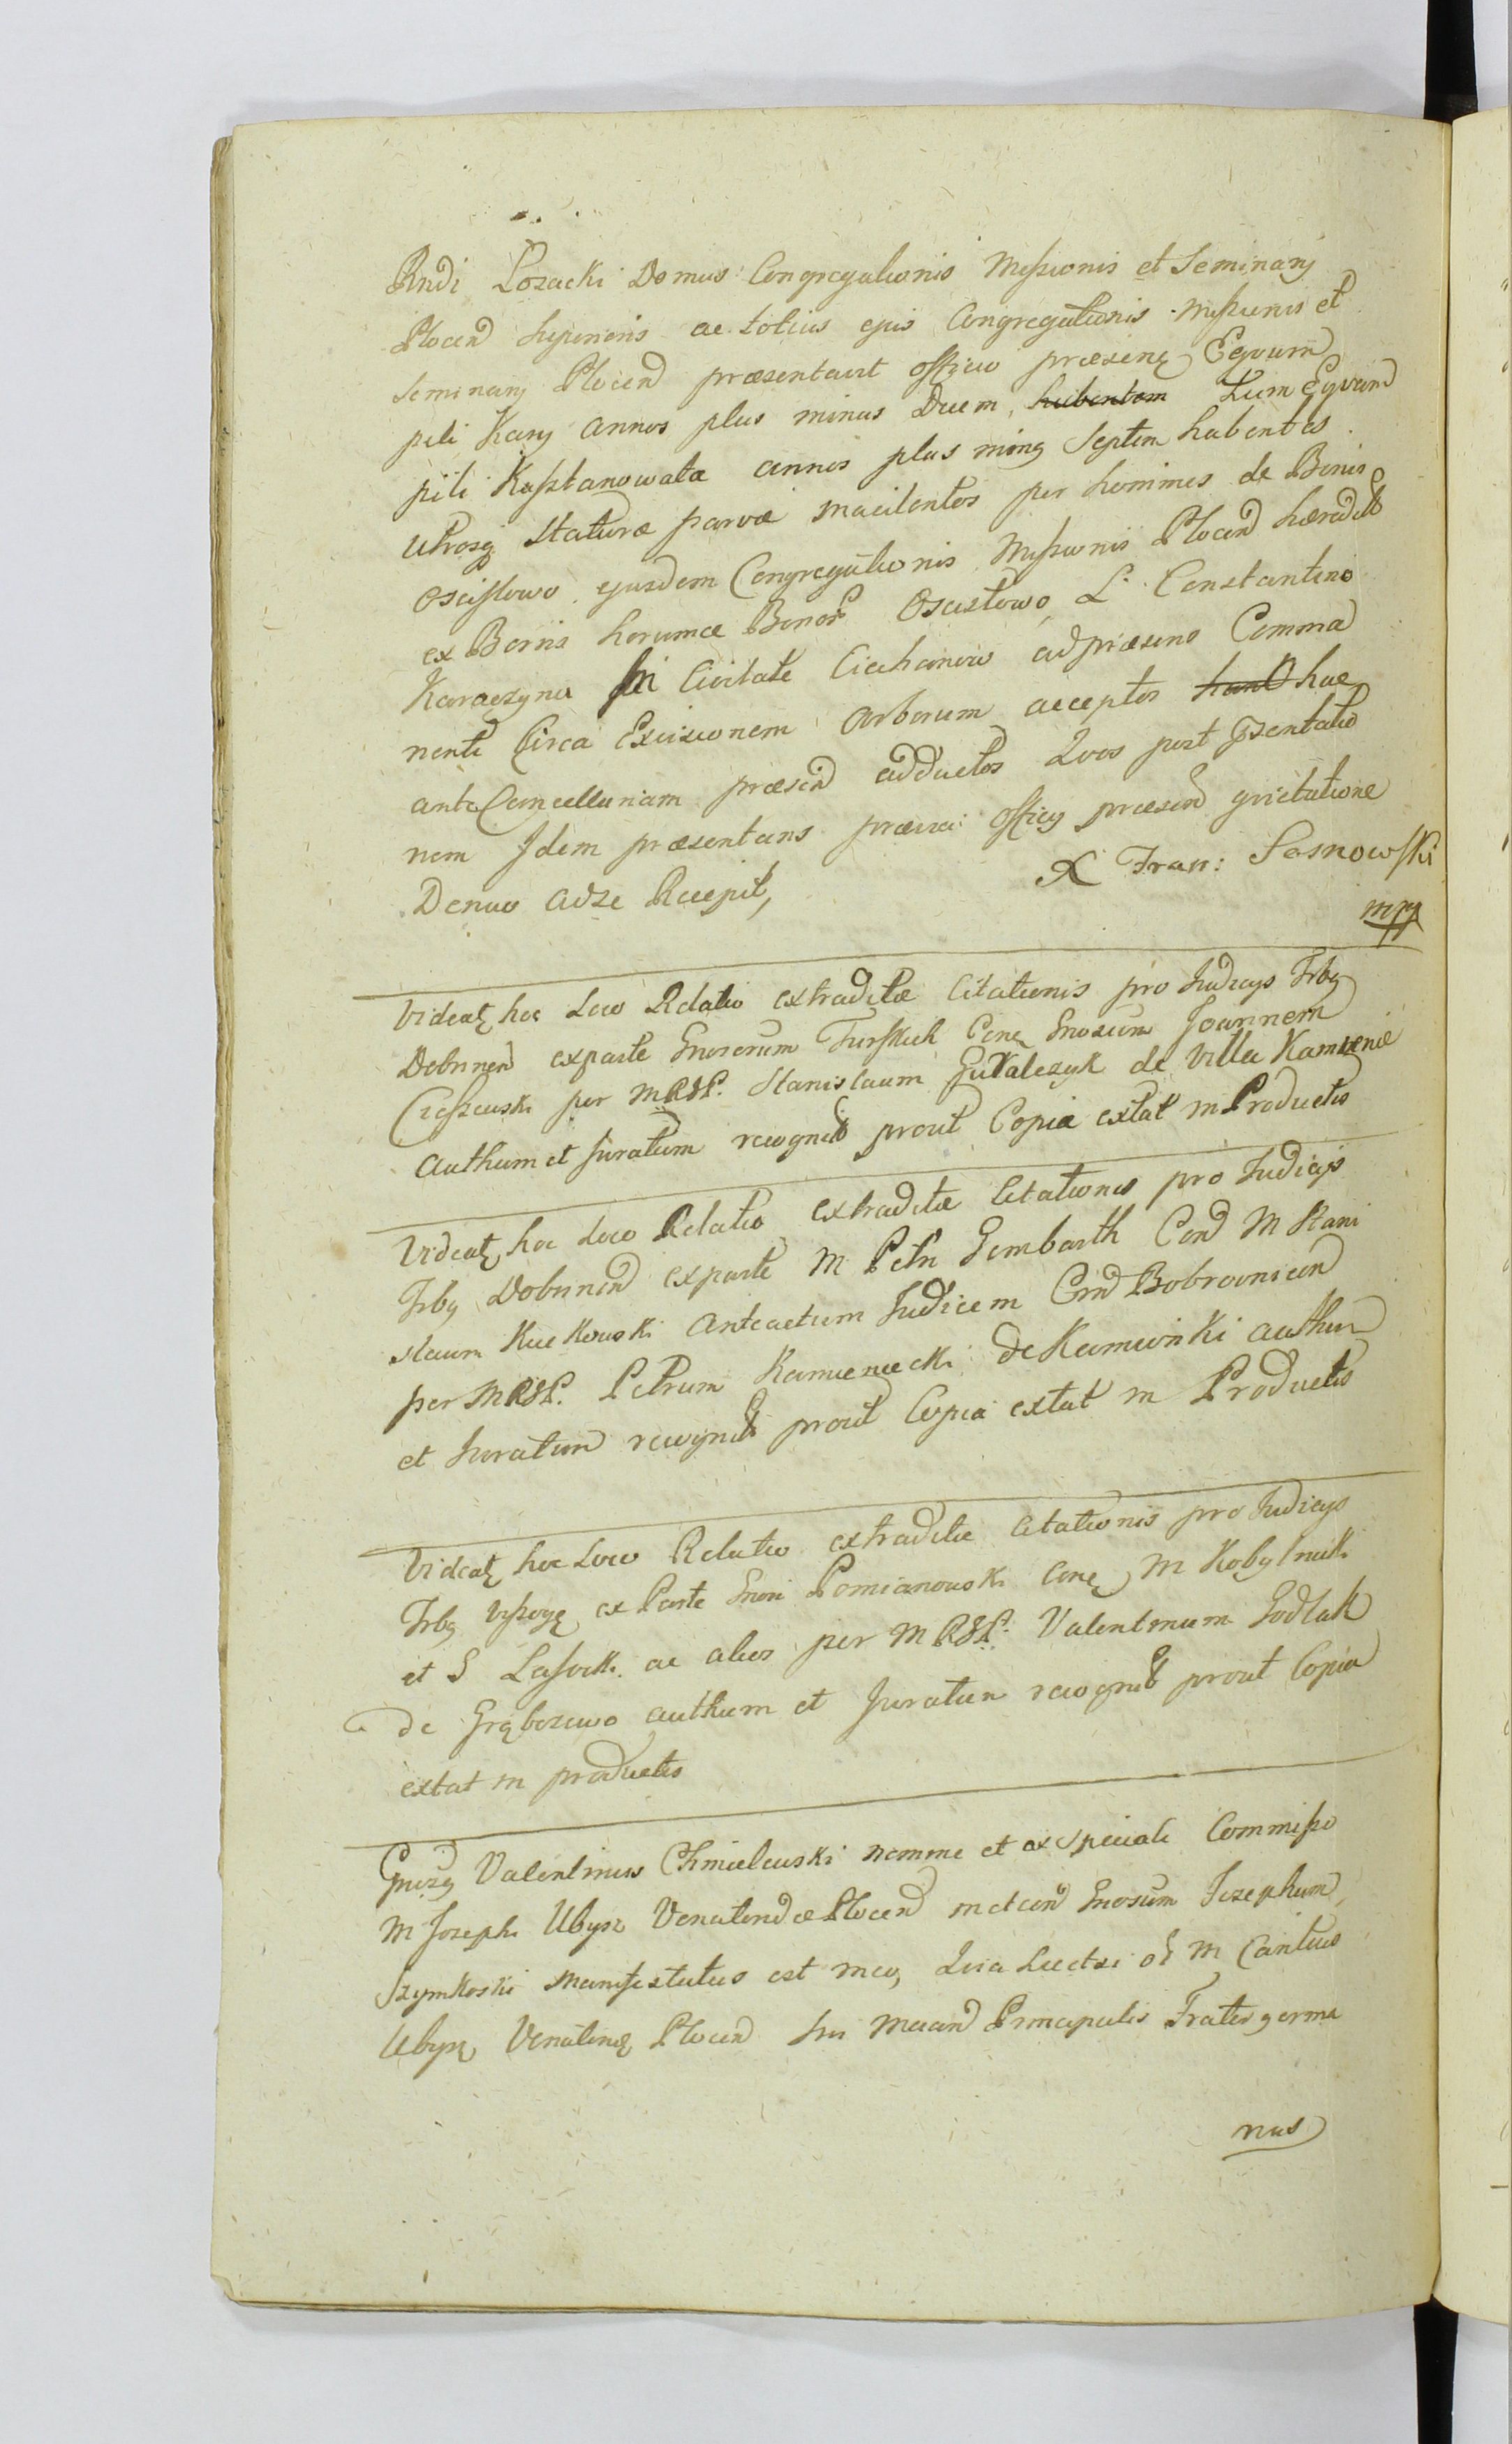 Rndi Łozacki Domus Congregationis Missionis et Seminarij
Plocen Superioris ac totius ejus Congregationis Missionis et
Seminarij Plocen præsentavit officio præsenę Equum
pili Kary annos plus minus Decem, habentem Tum Equum
pili Kasztanowatæ annos plus minq Septem habentes
utrosq Staturæ parvæ macilentos per homines de Bonis
Oscisłowo ejusdem Congregationis Missionis Plocen hæredit
ex Bonis horumce Bonor Oscisłowo, L. Constantino
Karaczyna In Civitate Ciechanow ad præsens Comma
nente Circa Excisionem Arborum acceptos hanc hac
ante Cancellariam præsen adductos Quos post pzentatio
nem Idem præsentans prævia officij præsen qvietatione
Denuo ad se Recepit,
X Fran: Sosnowski
mpp
Videatę hoc Loco Relatio extraditæ Citationis pro Judicijs Trbg
Dobrinen ex parte Gnosorum Turskich Cone Gnosum Joannem
Cieszewski per MRGP. Stanislaum Gutalczyk de Villa Kamienie
Authum et Juratum recognit prout Copia extat in Productis
Videatę hoc Loco Relatio extraditæ Citationis pro Judicijs
Trbg Dobrinen ex parte M Petri Gembarth Con M Stani
slaum Kuckowski Anteactum Judicem Crn Bobrovnicen
per MRGP. Petrum Kamienecki de Kamionki authum
et Juratum recognit prout Copia extat in Productis
Videatę hoc Loco Relatio extraditæ Citationis pro Judicijs
Trbg Wyszogę ex Parte Gnosi Pomianowski Cone M Kobylnicki
et G Lasocki ac alios per MRGP. Valentinum Godlak
de Grąbczewo authum et Juratum recognit prout Copia
extat in productis
Gnosg Valentinus Chmielewski nomine et ex Speciali Commisso
M Josephi Ubysz Venatoridæ Plocen met con Gnosum Josephum
Szymkoski Manifestatus est in eo, Quia Luctzi M Cantius
Ubysz Venatoridę Plocen Sui Principalis Frater germa
nus